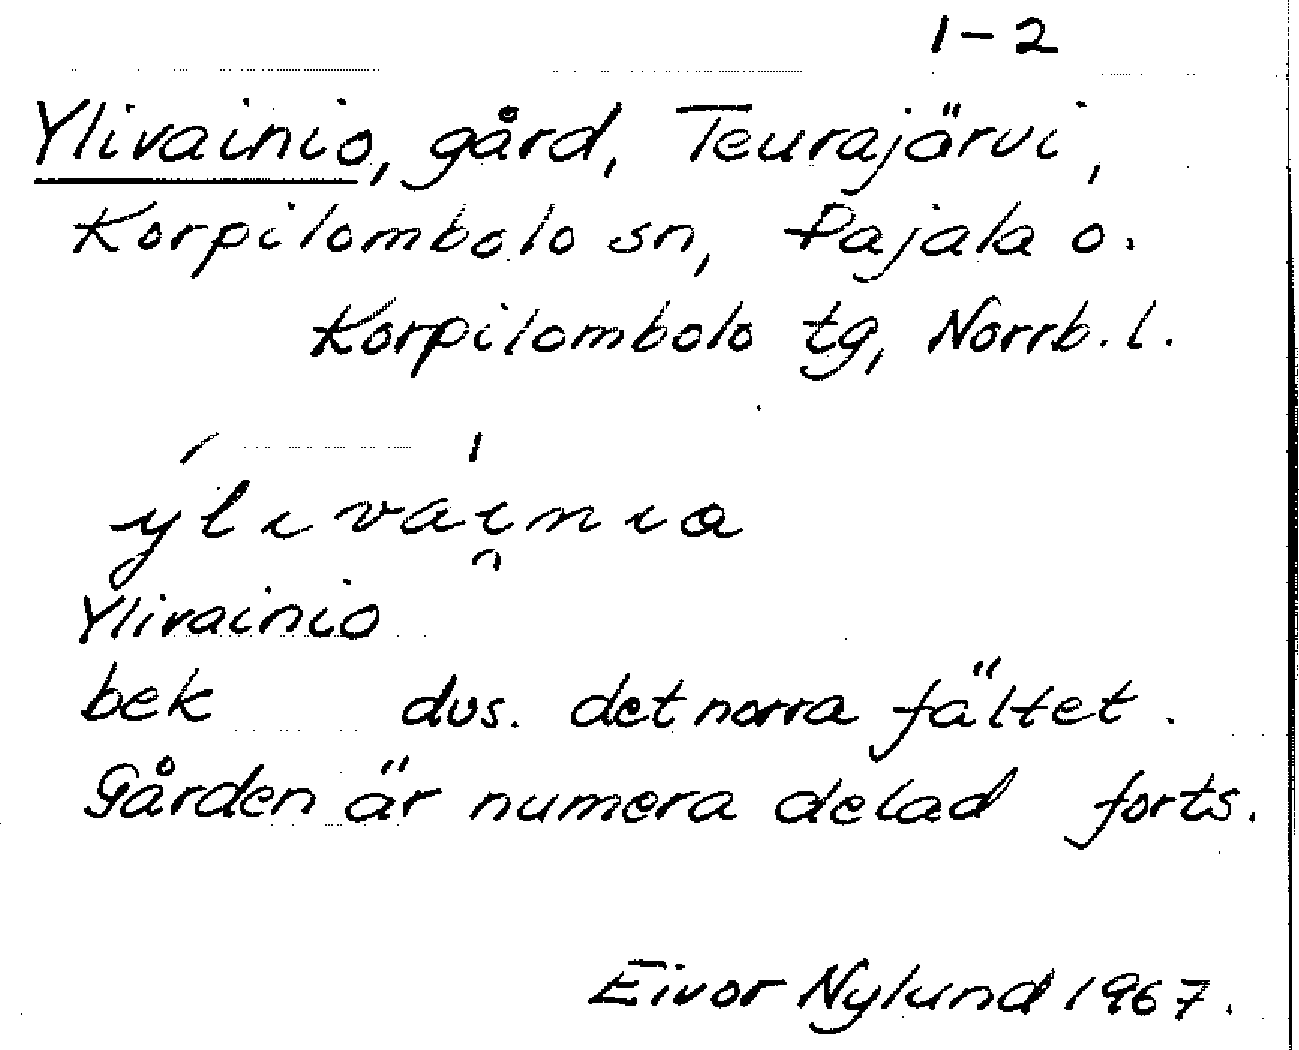 1-2
Ylivainio, gård, Teurajärvi,
Korpilombolo sn, Pajala o.
Korpilombolo tg, Norrb. l.
ýlivaí̯nio
Ylivainio
bek dvs. det norra fältet.
Gården är numera delad forts.
Eivor Nylund 1967.